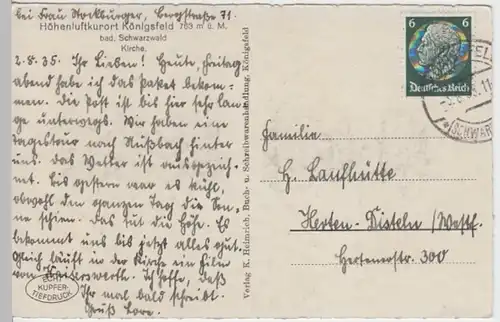 bei Frau Stockburger, Bergstraße 71.
Höhenluftkurort Königsfeld 763 m ü. M.
bad. Schwarzwald
Kirche.
2.8.35. Ihr Lieben! Heute, Freitag
abend habe ich das Paket bekom-
men. Die Post ist bis hier sehr lan-
ge unterwegs. Wir haben eine
Tagestour nach Nußbach hinter
uns. Das Wetter ist ausgezeich-
net. Bis gestern war es kühl,
obwohl den ganzen Tag die Son-
ne schien. Das tut die Höhe. Es
bekommt uns bis jetzt alles gut.
Gleich läuft in der Kirche ein Film
von Kaiserswerth. Ich hoffe, daß
Ihr mal bald schreibt.
Gruß Lore.
ECHT
KUPFER-
TIEFDRUCK
Verlag K. Heimrich, Buch- u. Schreibwarenhandlung, Königsfeld
6 6
Deutsches Reich
(SCHWAR
Familie
H. Laufhütte
Herten-Disteln/Westf.
Hertenerstr. 300